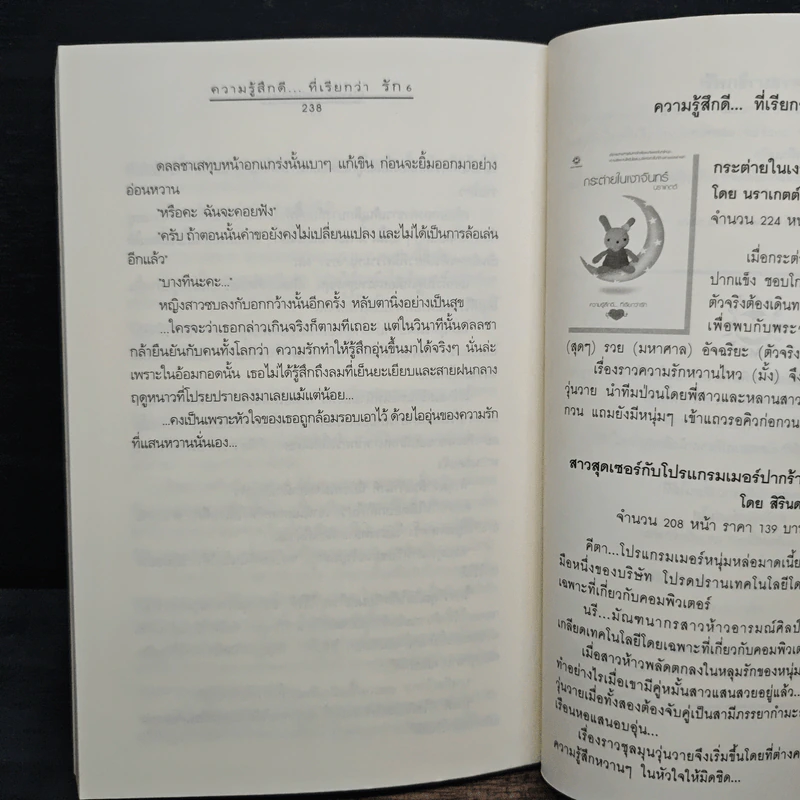 ความรู้สึกดี... ที่เรียกว่า รัก 6
238
ดลลชาเสทุบหน้าอกแกร่งนั้นเบาๆ แก้เขิน ก่อนจะยิ้มออกมาอย่าง
อ่อนหวาน
"หรือคะ ฉันจะคอยฟัง"
"ครับ ถ้าตอนนั้นคำขอยังคงไม่เปลี่ยนแปลง และไม่ได้เป็นการล้อเล่น
อีกแล้ว"
"บางทีนะคะ..."
หญิงสาวซบลงกับอกกว้างนั้นอีกครั้ง หลับตานิ่งอย่างเป็นสุข
...ใครจะว่าเธอกล่าวเกินจริงก็ตามทีเถอะ แต่ในวินาทีนั้นดลลชา
กล้ายืนยันกับคนทั้งโลกว่า ความรักทำให้รู้สึกอุ่นขึ้นมาได้จริงๆ นั่นล่ะ
เพราะในอ้อมกอดนั้น เธอไม่ได้รู้สึกถึงลมที่เย็นยะเยียบและสายฝนกลาง
ฤดูหนาวที่โปรยปรายลงมาเลยแม้แต่น้อย...
...คงเป็นเพราะหัวใจของเธอถูกล้อมรอบเอาไว้ ด้วยไออุ่นของความรัก
ที่แสนหวานนั่นเอง...
ความรู้สึกดี... ที่เรียก
กระต่ายในเงาจันทร์
นราเกตต์
ความรู้สึกดี... ที่เรียกว่ารัก
กระต่ายในเง
โดย นราเกตต์
จำนวน 224 หน้
เมื่อกระต่
ปากแข็ง ชอบโก
ตัวจริงต้องเดินท
เพื่อพบกับพระ
(สุดๆ) รวย (มหาศาล) อัจฉริยะ (ตัวจริง
เรื่องราวความรักหวานไหว (มั้ง) จึง
วุ่นวาย นำทีมป่วนโดยพี่สาวและหลานสาว
กวน แถมยังมีหนุ่มๆ เข้าแถวรอคิวก่อกวน
สาวสุดเซอร์กับโปรแกรมเมอร์ปากร้า
โดย สิรินด
จำนวน 208 หน้า ราคา 139 บา
คีตา...โปรแกรมเมอร์หนุ่มหล่อมาดเนี้ย
มือหนึ่งของบริษัท โปรดปรานเทคโนโลยีโด
เฉพาะที่เกี่ยวกับคอมพิวเตอร์
นรี...มัณฑนากรสาวห้าวอารมณ์ศิลป์
เกลียดเทคโนโลยีโดยเฉพาะที่เกี่ยวกับคอมพิวเต
เมื่อสาวห้าวพลัดตกลงในหลุมรักของหนุ่ม
ทำอย่างไรเมื่อเขามีคู่หมั้นสาวแสนสวยอยู่แล้ว...
วุ่นวายเมื่อทั้งสองต้องจับคู่เป็นสามีภรรยากำมะ
เรือนหอแสนอบอุ่น...
เรื่องราวชุลมุนวุ่นวายจึงเริ่มขึ้นโดยที่ต่างค
ความรู้สึกหวานๆ ในหัวใจให้มิดชิด...